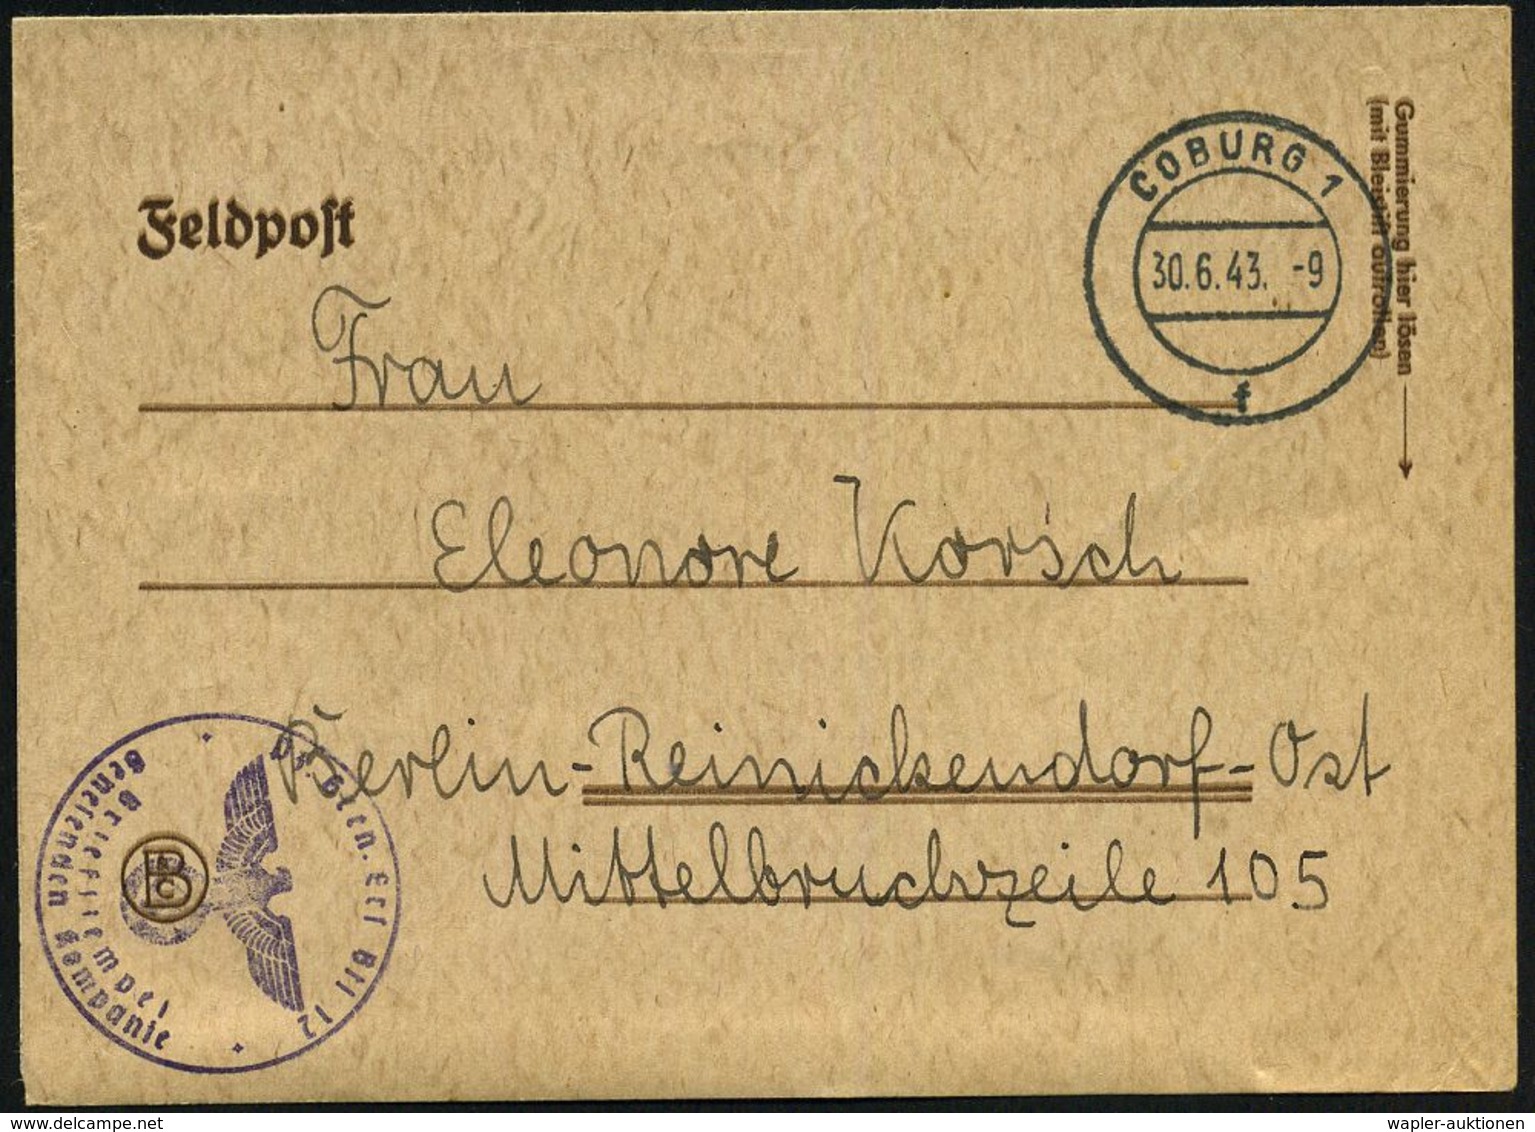 Feldpost
COBURG 1
30.6.43. -9
f
Gummierung hier lösen
(mit Bleistift aufrollen)
Frau
Eleonore Korsch
Berlin-Reinickendorf-Ost
Mittelbruchzeile 105
Ers Btl 12
Genesenden Kompanie
Briefstempel
B
C
wapler-auktionen